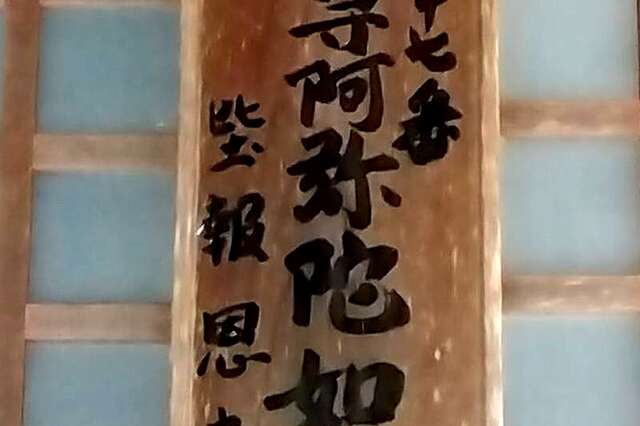 十七番
尊阿弥陀如
報恩